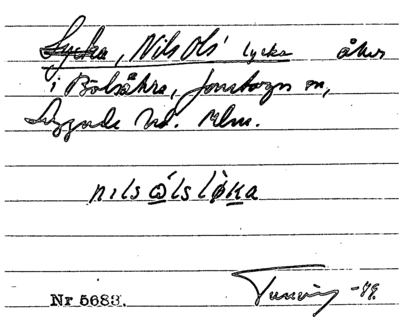 Lycka, Nils Ols' lycka åker
i Bölsåkra, Jonstorps sn,
Luggude hd. Mlm.
nils ólsløka
Nr 5683. -49.